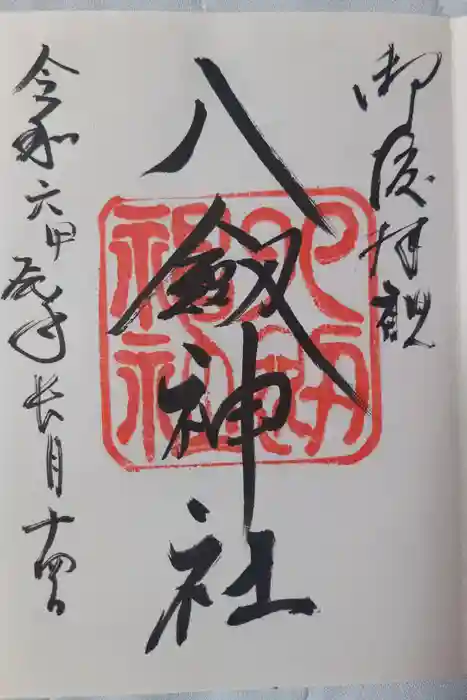 御渡拝観
八剱神社
令和六甲辰年長月十四日